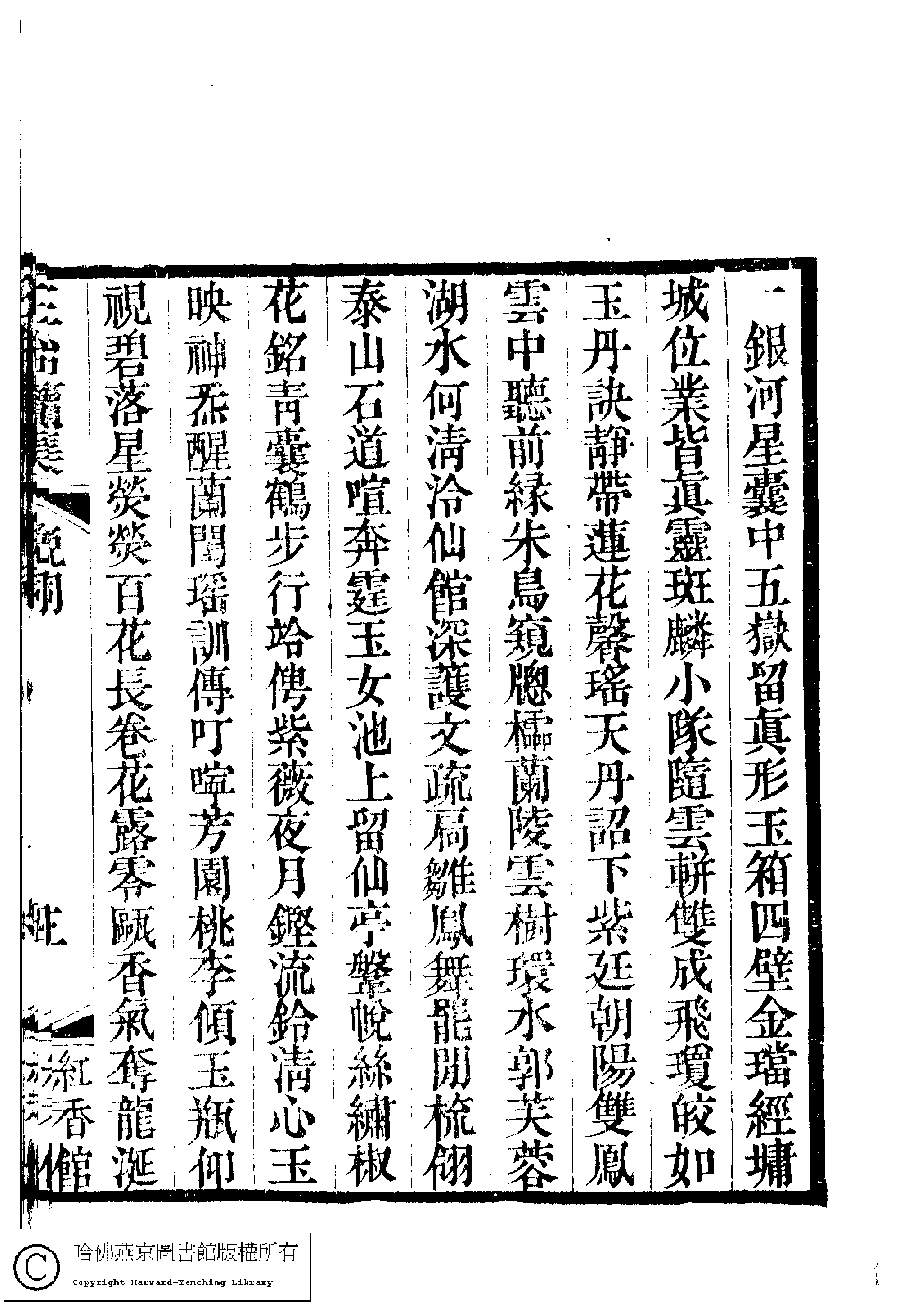 一銀河星囊中五嶽留眞形玉箱四壁金璫經墉
城位業皆眞靈斑麟小隊隨雲輧雙成飛瓊皎如
玉丹訣靜帶蓮花馨瑤天丹詔下紫廷朝陽雙鳳
雲中聽前緣朱鳥窺牕櫺蘭陵雲樹環水郭芙蓉
湖水何淸泠仙館深護文疏扃雛鳳舞罷閒梳翎
泰山石道喧奔霆玉女池上留仙亭鞶帨絲繡椒
花銘靑囊鶴步行竛俜紫薇夜月鏗流鈴淸心玉
映神炁醒蘭閨瑤訓傳叮嚀芳園桃李傾玉瓶仰
視碧落星熒熒百花長卷花露零甌香氣奪龍涎
紅香館
哈佛燕京圖書館版權所有
Copyright Harvard-Yenching Library